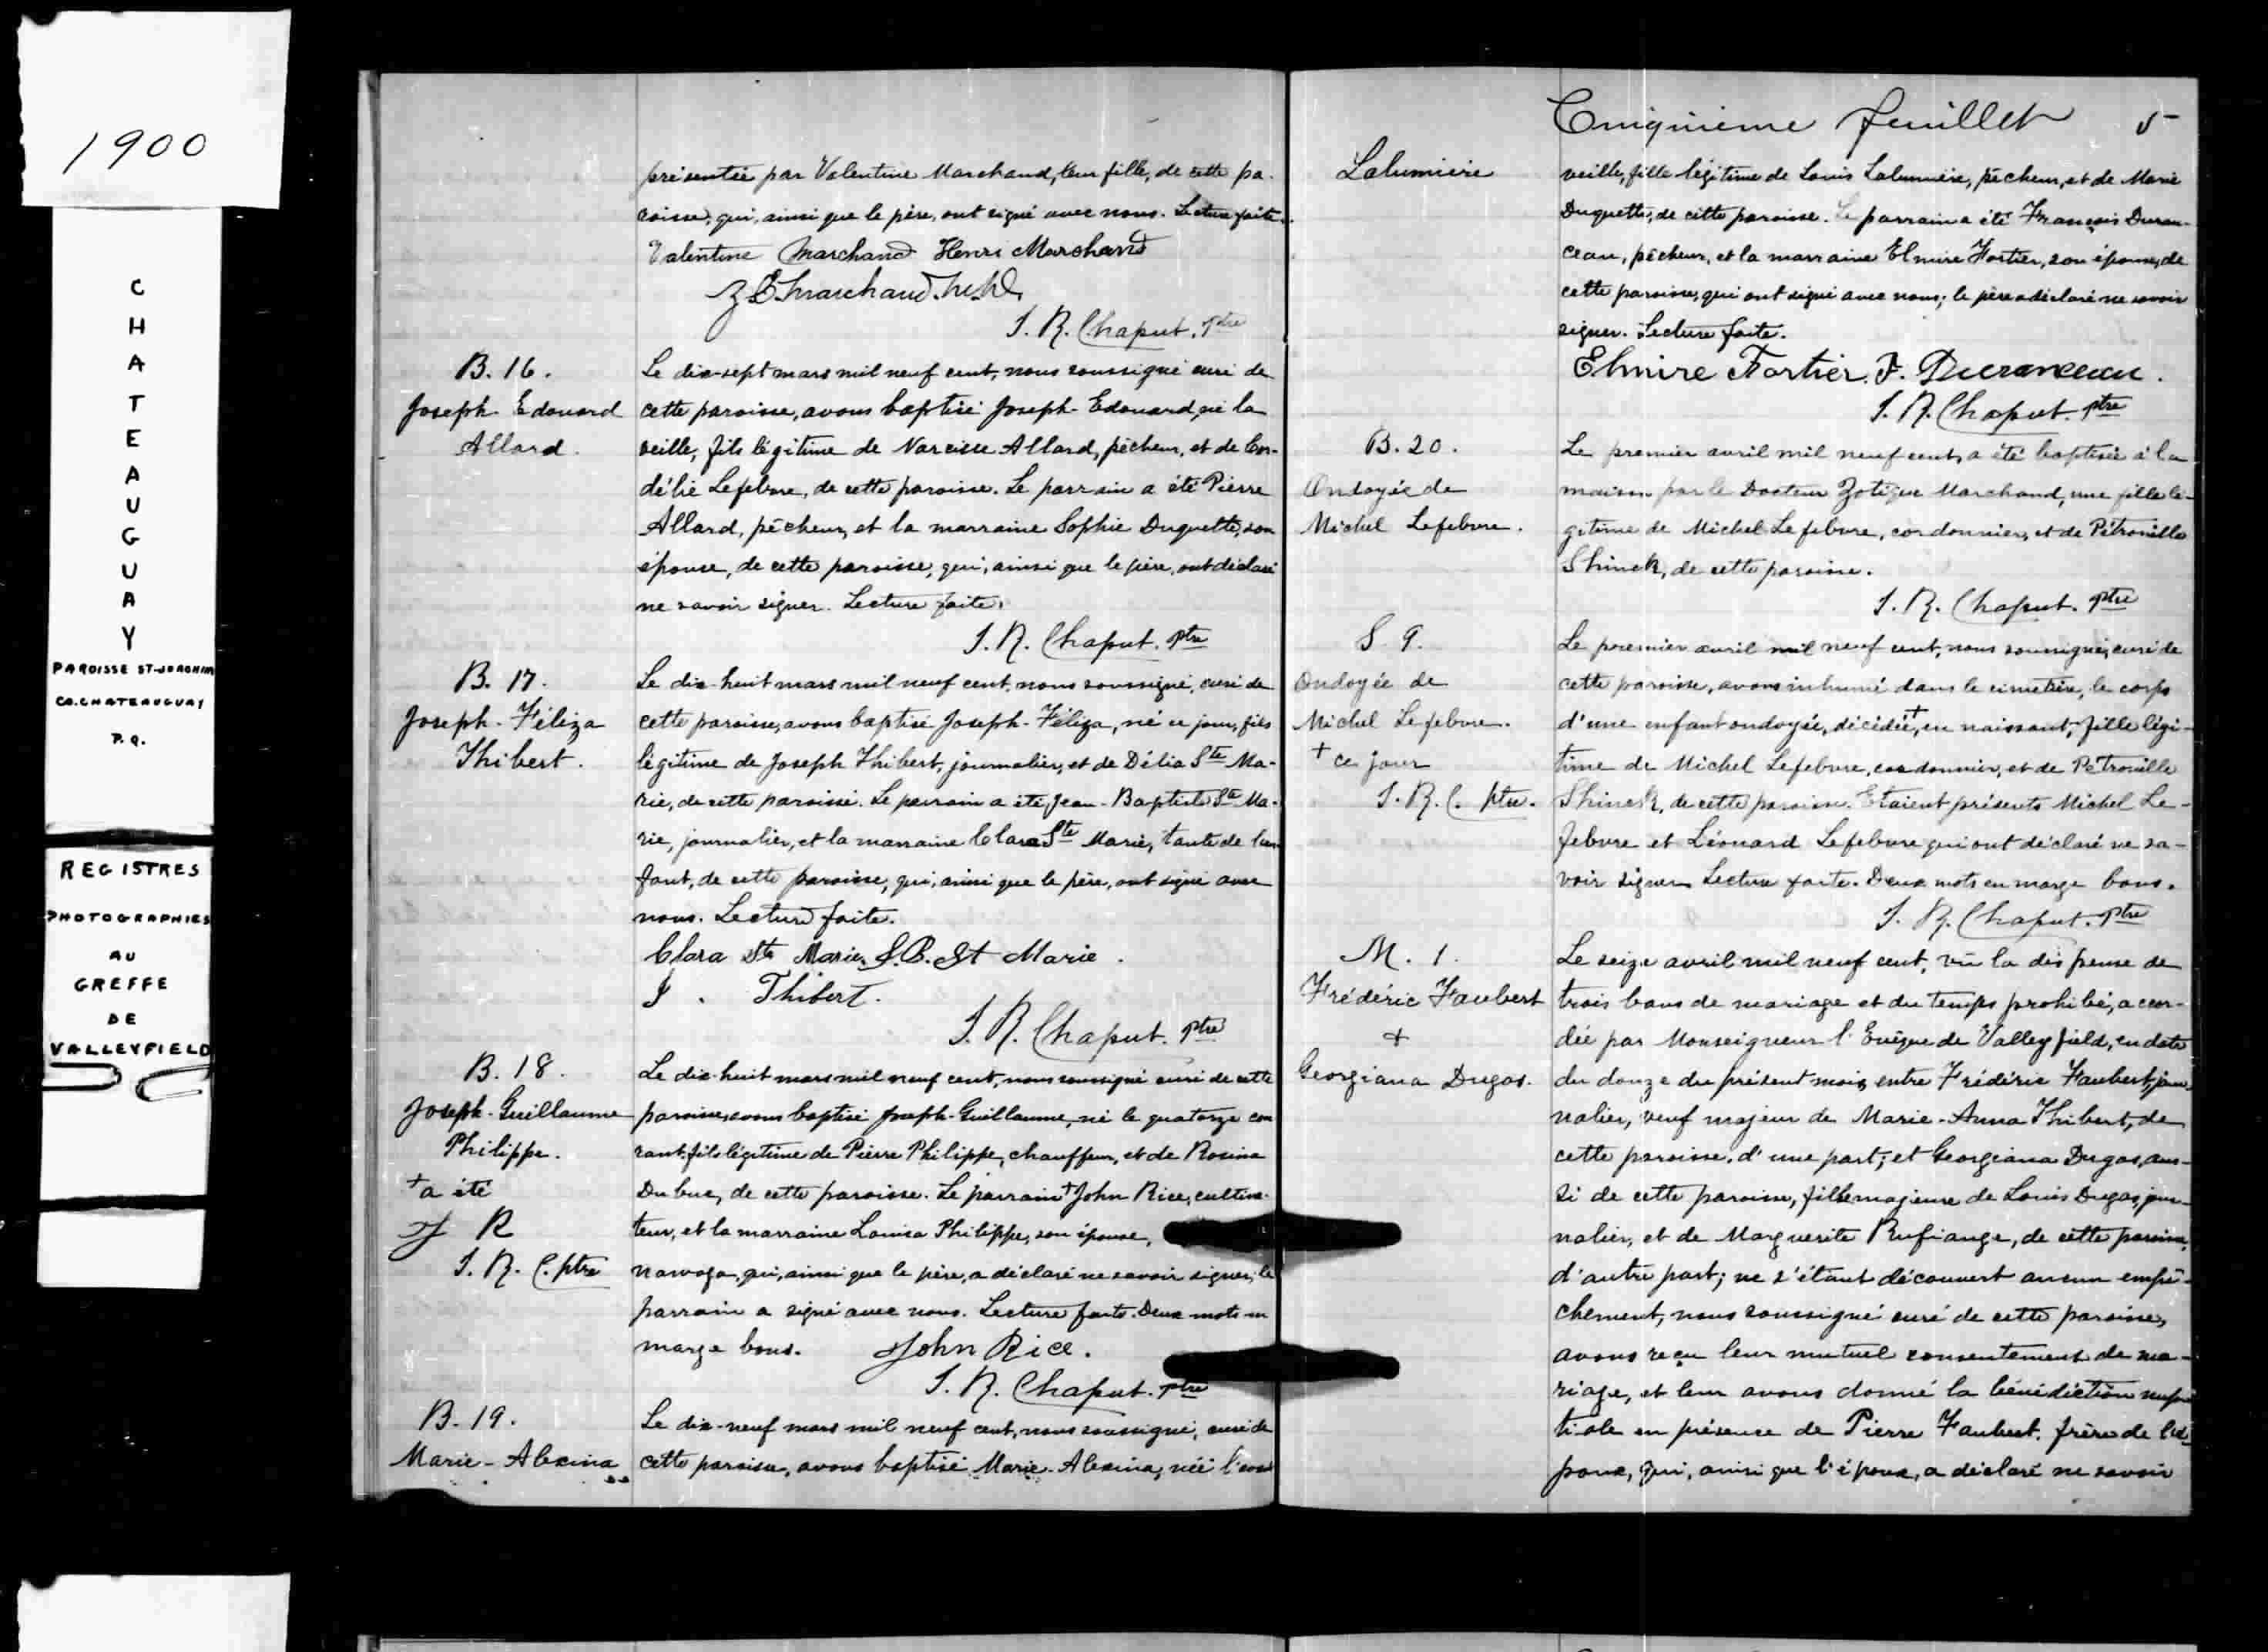 1900
CHATEAUGUAY
PAROISSE ST-JOACHIM
CO. CHATEAUGUAY
P.Q.
REGISTRES
PHOTOGRAPHIES
AU
GREFFE
DE
VALLEYFIELD
présentée par Valentine Marchand, leur fille, de cette pa-
roisse, qui, ainsi que le père, ont signé avec nous. Lecture faite.
Valentine Marchand Henri Marchand
Z E Marchand M.D.
J. R. Chaput. Ptre
B. 16.
Joseph Edouard
Allard.
Le dix-sept mars mil neuf cent, nous soussigné curé de
cette paroisse, avons baptisé Joseph-Edouard, né la
veille, fils légitime de Narcisse Allard, pêcheur, et de Cor-
délie Lefebvre, de cette paroisse. Le parrain a été Pierre
Allard, pêcheur, et la marraine Sophie Duquette, son
épouse, de cette paroisse, qui, ainsi que le père, ont déclaré
ne savoir signer. Lecture faite.
J. R. Chaput. Ptre
B. 17.
Joseph-Féliza
Thibert.
Le dix-huit mars mil neuf cent, nous soussigné, curé de
cette paroisse, avons baptisé Joseph-Féliza, né ce jour, fils
légitime de Joseph Thibert, journalier, et de Délia Ste Ma-
rie, de cette paroisse. Le parrain a été Jean-Baptiste Ste Ma-
rie, journalier, et la marraine Clara Ste Marie, tante de l'en-
fant, de cette paroisse, qui, ainsi que le père, ont signé avec
nous. Lecture faite.
Clara Ste Marie J. B. St Marie.
J. Thibert.
J. R. Chaput. Ptre
B. 18.
Joseph-Guillaume
Philippe.
+ a été
J R
J. R. C. ptre
Le dix-huit mars mil neuf cent, nous soussigné curé de cette
paroisse, avons baptisé Joseph-Guillaume, né le quatorze cou
rant, fils légitime de Pierre Philippe, chauffeur, et de Rosina
Dubuc, de cette paroisse. Le parrain + John Rice, cultiva-
teur, et la marraine Louisa Philippe, son épouse,
nawaga, qui, ainsi que le père, a déclaré ne savoir signer, le
parrain a signé avec nous. Lecture faite. Deux mots en
marge bons. John Rice.
J. R. Chaput. ptre
B. 19.
Marie-Alexina
Le dix-neuf mars mil neuf cent, nous soussigné, curé de
cette paroisse, avons baptisé Marie-Alexina, née l'avant
Cinquième feuillet 5
Lalumière
veille, fille légitime de Louis Lalumière, pêcheur, et de Marie
Duquette, de cette paroisse. Le parrain a été François Duran-
ceau, pêcheur, et la marraine Elmire Fortier, son épouse, de
cette paroisse, qui ont signé avec nous; le père a déclaré ne savoir
signer. Lecture faite.
Elmire Fortier. F. Duranceau.
J. R. Chaput. ptre
B. 20.
Ondoyée de
Michel Lefebvre.
Le premier avril mil neuf cent, a été baptisée à la
maison par le Docteur Zotique Marchand, une fille lé-
gitime de Michel Lefebvre, cordonnier, et de Pétronille
Shinck, de cette paroisse.
J. R. Chaput. Ptre
S 9.
Ondoyée de
Michel Lefebvre.
+ ce jour
J. R. C. ptre.
Le premier avril mil neuf cent, nous soussigné, curé de
cette paroisse, avons inhumé dans le cimetière, le corps
d'une enfant ondoyée, décédée +, en naissant, fille légi-
time de Michel Lefebvre, cordonnier, et de Pétronille
Shinck, de cette paroisse. Etaient présents Michel Le-
febvre et Léonard Lefebvre qui ont déclaré ne sa-
voir signer. Lecture faite. Deux mots en marge bons.
J. R. Chaput. Ptre
M. 1.
Frédéric Faubert
+
Georgiana Dugas.
Le seize avril mil neuf cent, vu la dispense de
trois bans de mariage et du temps prohibé, accor-
dée par Monseigneur l'Evêque de Valleyfield, en date
du douze du présent mois, entre Frédéric Faubert, jour-
nalier, veuf majeur de Marie-Anna Thibert, de
cette paroisse, d'une part; et Georgiana Dugas, aus-
si de cette paroisse, fille majeure de Louis Dugas, jour-
nalier, et de Marguerite Rufiange, de cette paroisse,
d'autre part; ne s'étant découvert aucun empê-
chement, nous soussigné curé de cette paroisse,
avons reçu leur mutuel consentement de ma-
riage, et leur avons donné la bénédiction nup-
tiale en présence de Pierre Faubert, frère de l'é-
poux, qui, ainsi que l'époux, a déclaré ne savoir